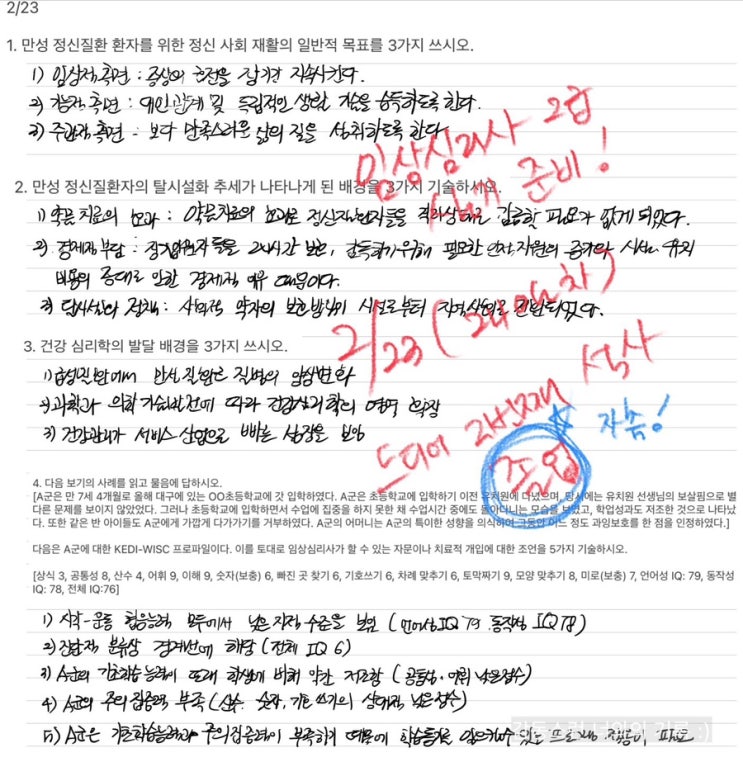 2/23
1. 만성 정신질환 환자를 위한 정신 사회 재활의 일반적 목표를 3가지 쓰시오.
1) 임상적 측면 : 증상의 호전을 장기간 지속시킨다.
2) 개인적 측면 : 대인관계 및 독립적인 생활 기술을 습득하도록 한다.
3) 주관적 측면 : 보다 만족스러운 삶의 질을 성취하도록 한다
임상심리사 2급
실기 준비!
2. 만성 정신질환자의 탈시설화 추세가 나타나게 된 배경을 3가지 기술하시오.
1) 약물 치료의 효과 : 약물치료의 효과로 정신질환자들을 격리상태로 감금할 필요가 없게 되었다.
2) 경제적 부담 : 장기입원환자들을 24시간 보호, 감독하기 위해 필요한 인적 자원의 증가와 시설 유지
비용의 증대로 인한 경제적 이유 때문이다.
3) 탈시설화 정책 : 사회적 약자의 보호방법이 시설로부터 지역사회로 전환되었다.
2/23 (2회차)
3. 건강 심리학의 발달 배경을 3가지 쓰시오.
1) 급성질환에서 만성질환으로 질병의 양상변화
2) 과학과 의학기술발전에 따라 건강심리학의 영역 확장
3) 건강관리가 서비스 산업으로 빠른 성장을 보임
드디어 2번째 석사
졸업
자축!
4. 다음 보기의 사례를 읽고 물음에 답하시오.
[A군은 만 7세 4개월로 올해 대구에 있는 OO초등학교에 갓 입학하였다. A군은 초등학교에 입학하기 이전 유치원에 다녔으며, 당시에는 유치원 선생님의 보살핌으로 별
다른 문제를 보이지 않았었다. 그러나 초등학교에 입학하면서 수업에 집중을 하지 못한 채 수업시간 중에도 돌아다니는 모습을 보였고, 학업성과도 저조한 것으로 나타났
다. 또한 같은 반 아이들도 A군에게 가깝게 다가가기를 거부하였다. A군의 어머니는 A군의 특이한 성향을 의식하여 그동안 어느 정도 과잉보호를 한 점을 인정하였다.]
다음은 A군에 대한 KEDI-WISC 프로파일이다. 이를 토대로 임상심리사가 할 수 있는 자문이나 치료적 개입에 대한 조언을 5가지 기술하시오.
[상식 3, 공통성 8, 산수 4, 어휘 9, 이해 9, 숫자(보충) 6, 빠진 곳 찾기 6, 기호쓰기 6, 차례 맞추기 6, 토막짜기 9, 모양 맞추기 8, 미로(보충) 7, 언어성 IQ: 79, 동작성
IQ: 78, 전체 IQ:76]
1) 시각-운동 협응능력 모두에서 낮은 지적 수준을 보임 (언어성 IQ 79 동작성 IQ 78)
2) 진단적 분류상 경계선에 해당 (전체 IQ 6)
3) A군의 기초학습능력이 또래 학생에 비해 약간 저조함 (공통성·어휘 낮은점수)
4) A군의 주의집중력 부족 (산수, 숫자, 기호쓰기의 상대적 낮은점수)
5) A군은 기초학습능력과 주의집중력이 부족하기 때문에 학습동기를 일으킬 수 있는 프로그램 적용이 필요